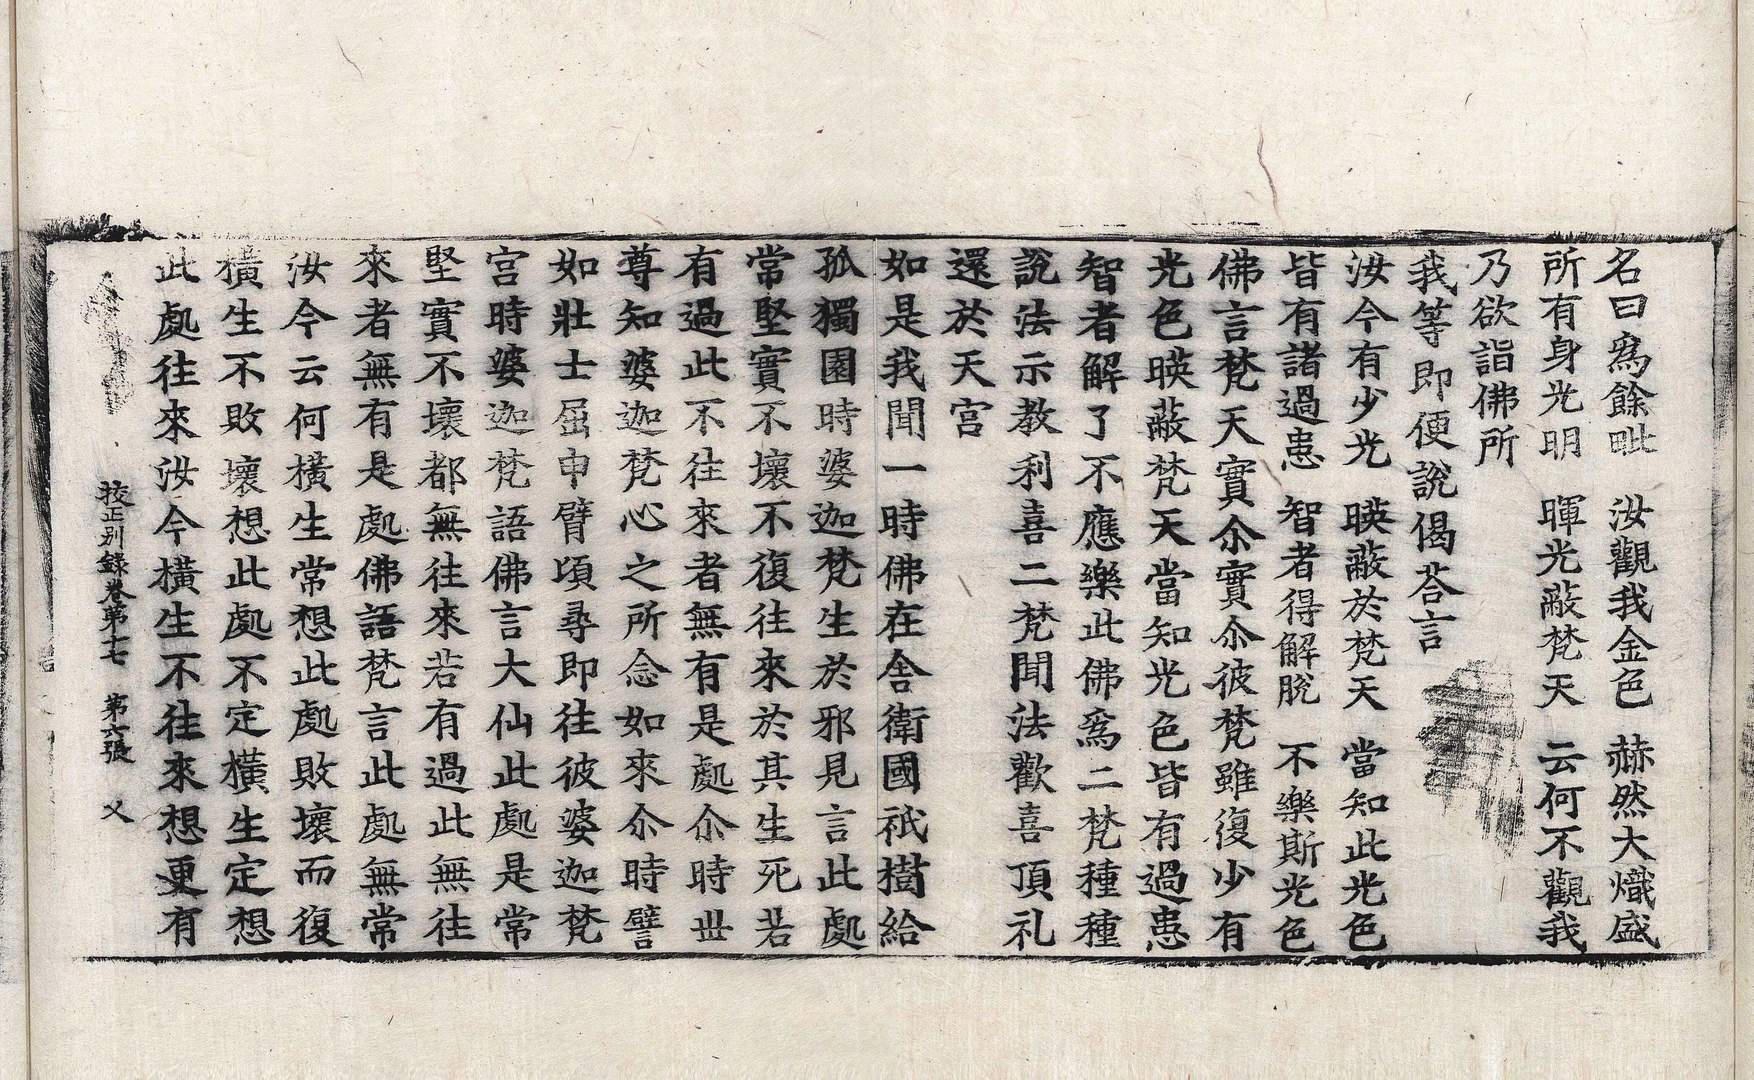 名曰爲餘毗　汝觀我金色　赫然大熾盛
所有身光明　暉光蔽梵天　云何不觀我
乃欲詣佛所
我等即便說偈荅言
汝今有少光　暎蔽於梵天　當知此光色
皆有諸過患　智者得解脫　不樂斯光色
佛言梵天實尒實尒彼梵雖復少有
光色暎蔽梵天當知光色皆有過患
智者解了不應樂此佛爲二梵種種
說法示教利喜二梵聞法歡喜頂礼
還於天宮
如是我聞一時佛在舍衛國祇樹給
孤獨園時婆迦梵生於邪見言此處
常堅實不壞不復往來於其生死若
有過此不往來者無有是處尒時世
尊知婆迦梵心之所念如來尒時譬
如壯士屈申臂頃尋即往彼婆迦梵
宮時婆迦梵語佛言大仙此處是常
堅實不壞都無往來若有過此無往
來者無有是處佛語梵言此處無常
汝今云何橫生常想此處敗壞而復
橫生不敗壞想此處不定橫生定想
此處往來汝今橫生不往來想更有
挍正別録卷第十七　第六張　乂